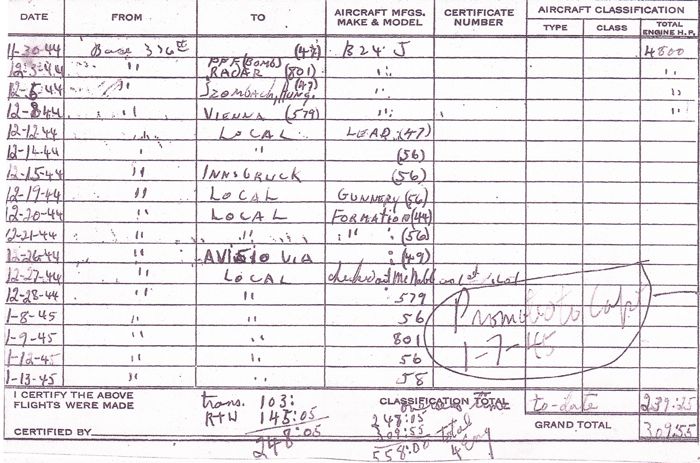 DATE FROM TO AIRCRAFT MFGS. MAKE & MODEL CERTIFICATE NUMBER AIRCRAFT CLASSIFICATION
TYPE CLASS TOTAL ENGINE H.P.
11-30-44 Base 376th (47) B24 J 4800
12-3-44 " PFF (BOMB) RADAR (801) " "
12-5-44 " Hung. (47) " "
12-8-44 " VIENNA (579) " "
12-12-44 " LOCAL LEAD (47)
12-14-44 " " (56)
12-15-44 " INNSBRUCK (56)
12-19-44 " LOCAL GUNNERY (56)
12-20-44 " LOCAL FORMATION (44)
12-21-44 " " " " (56)
12-26-44 " AVISIO VIA " (49)
12-27-44 " LOCAL check out on 1st
12-28-44 " " 579
1-8-45 " " 56
1-9-45 " " 801
1-12-45 " " 56
1-13-45 " " 58
Promoted to Capt
1-7-45
I CERTIFY THE ABOVE FLIGHTS WERE MADE
CERTIFIED BY
trans. 103:
R+W 145:05
248:05
CLASSIFICATION TOTAL
248:05
309:55
558:00 total 4 Eng
to-date 239:25
GRAND TOTAL 309:55